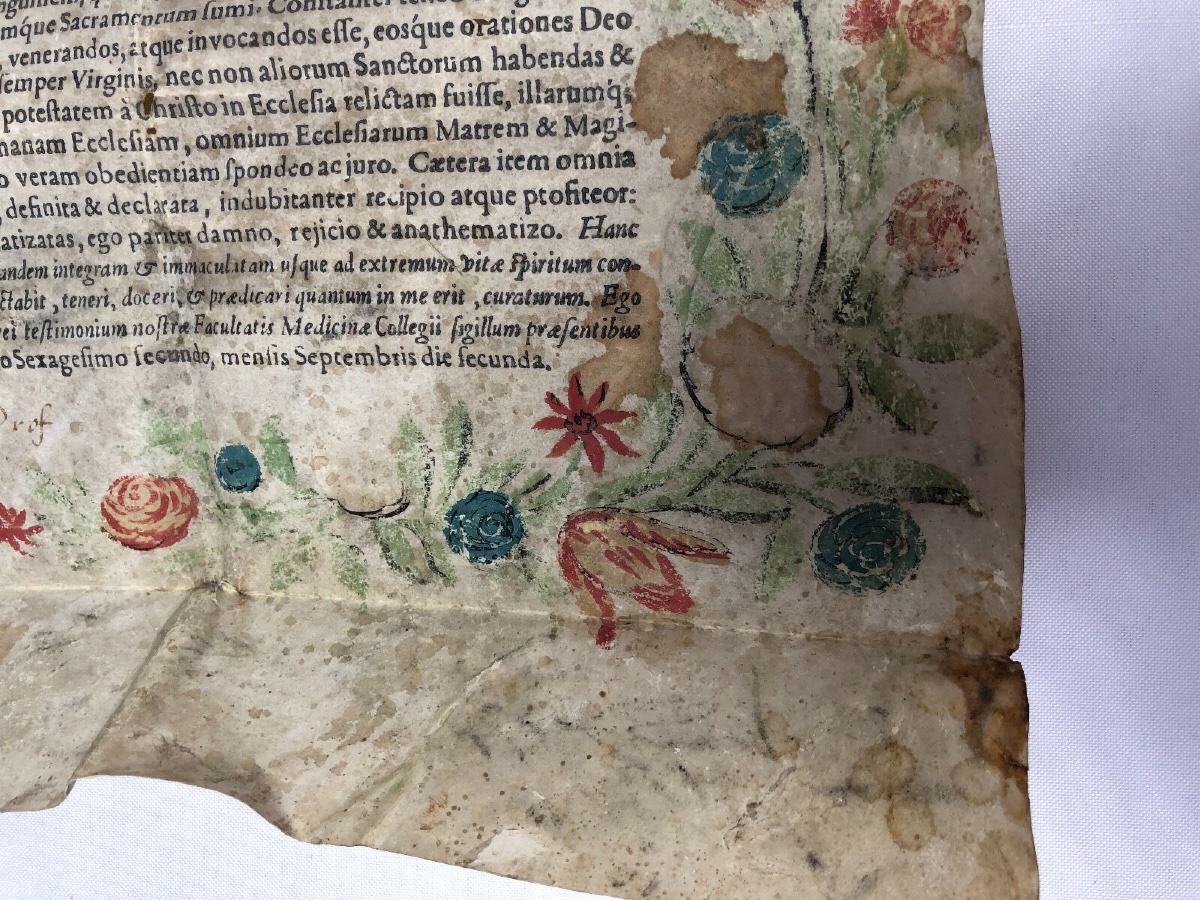 mque Sacramentum sumi. Constanter
, venerandos, atque invocandos esse, eosque orationes Deo
semper Virginis, nec non aliorum Sanctorum habendas &
potestatem à Christo in Ecclesia relictam fuisse, illarumq́;
manam Ecclesiam, omnium Ecclesiarum Matrem & Magi-
o veram obedientiam spondeo ac juro. Cætera item omnia
, definita & declarata, indubitanter recipio atque profiteor:
atizatas, ego pariter damno, rejicio & anathematizo. Hanc
andem integram & immaculatam usque ad extremum vitæ spiritum con-
ctabit, teneri, doceri, & prædicari quantum in me erit, curaturum. Ego
rei testimonium nostræ Facultatis Medicinæ Collegii sigillum præsentibus
o Sexagesimo secundo, mensis Septembris die secunda.
Prof